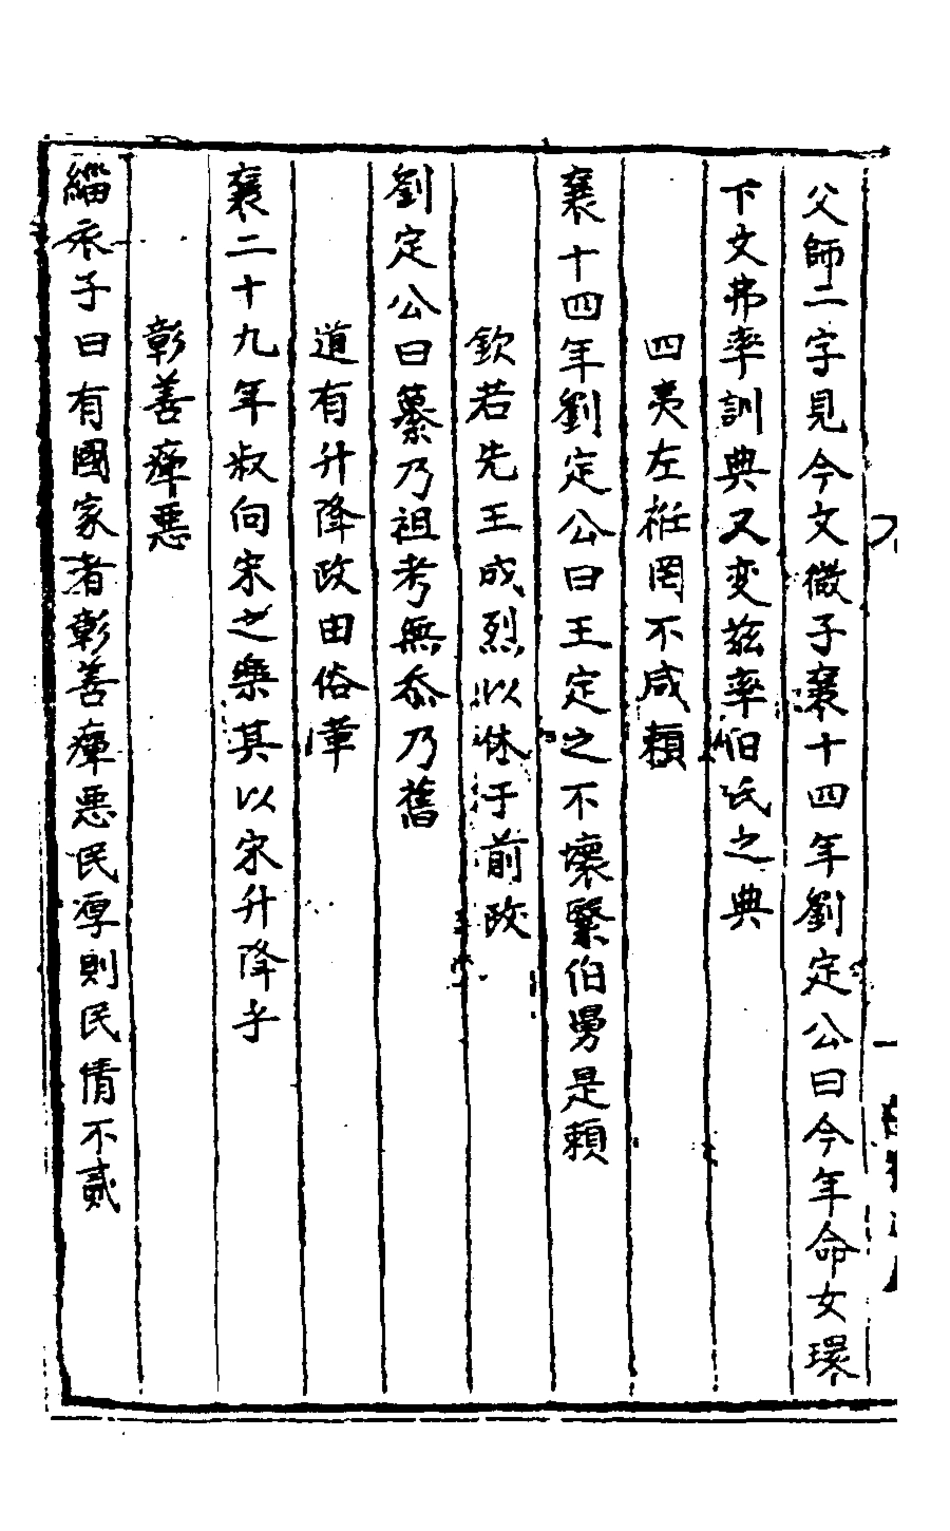 父師二字見今文微子襄十四年劉定公曰今年命女環
下文弗率訓典又変茲率伯氏之典
四夷左衽罔不咸賴
襄十四年劉定公曰王定之不壞繄伯舅是賴
欽若先王成烈以休于前政
劉定公曰纂乃祖考無忝乃舊
道有升降政由俗革
襄二十九年叔向宋之樂其以宋升降乎
彰善癉惡
緇衣子曰有國家者彰善癉惡民厚則民情不貳